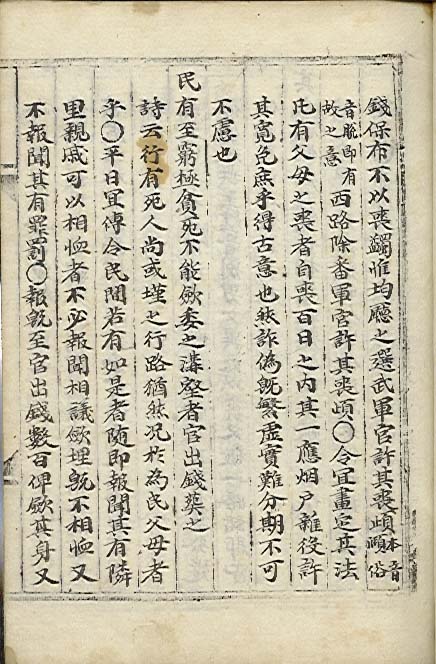 錢保布不以喪蠲惟均廳之選武軍官許其喪頉本音頤俗
音脫即有故之意西路除番軍官許其喪頉〇令宜畫定其法
凡有父母之喪者自喪百日之內其一應烟戶雜役許
其寬免庶乎得古意也然詐偽既繁虛實難分期不可
不慮也
民有至窮極貧死不能歛委之溝壑者官出錢葬之
詩云行有死人尚或墐之行路猶然况於為民父母者
乎〇平日宜傳令民間若有如是者隨即報聞其有隣
里親戚可以相恤者不必報聞相議歛埋既不相恤又
不報聞其有罪罰〇報既至官出錢數百俾歛其身又